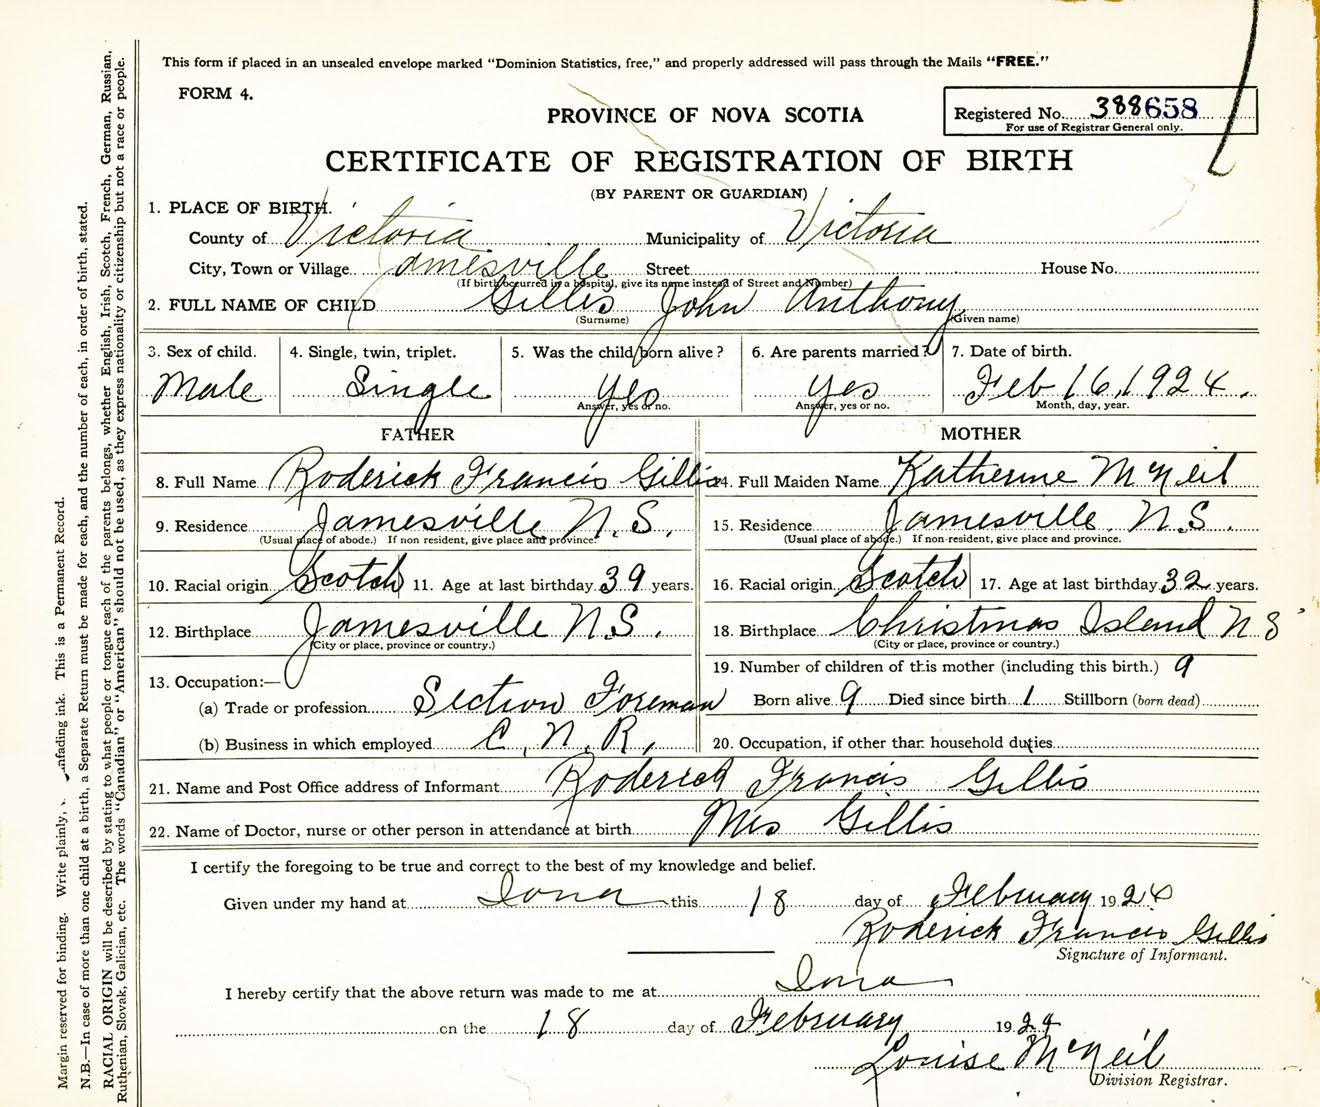 This form if placed in an unsealed envelope marked "Dominion Statistics, free," and properly addressed will pass through the Mails "FREE."
FORM 4.
PROVINCE OF NOVA SCOTIA
Registered No. 388658
For use of Registrar General only.
CERTIFICATE OF REGISTRATION OF BIRTH
(BY PARENT OR GUARDIAN)
1. PLACE OF BIRTH.
County of Victoria Municipality of Victoria
City, Town or Village Jamesville Street House No.
(If birth occurred in a hospital, give its name instead of Street and Number)
2. FULL NAME OF CHILD Gillis John Anthony
(Surname) (Given name)
3. Sex of child. 4. Single, twin, triplet. 5. Was the child born alive? 6. Are parents married? 7. Date of birth.
Male Single Yes Yes Feb 16, 1924.
Answer, yes or no. Answer, yes or no. Month, day, year.
FATHER MOTHER
8. Full Name Roderick Francis Gillis 14. Full Maiden Name Katherine McNeil
9. Residence Jamesville N.S. 15. Residence Jamesville. N.S.
(Usual place of abode.) If non resident, give place and province. (Usual place of abode.) If non-resident, give place and province.
10. Racial origin Scotch 11. Age at last birthday 39 years. 16. Racial origin Scotch 17. Age at last birthday 32 years.
12. Birthplace Jamesville N.S. 18. Birthplace Christmas Island N S
(City or place, province or country.) (City or place, province or country.)
19. Number of children of this mother (including this birth.) 9
13. Occupation:—
(a) Trade or profession Section Foreman Born alive 9 Died since birth 1 Stillborn (born dead)
(b) Business in which employed C. N. R. 20. Occupation, if other than household duties
21. Name and Post Office address of Informant Roderick Francis Gillis
22. Name of Doctor, nurse or other person in attendance at birth Mrs Gillis
I certify the foregoing to be true and correct to the best of my knowledge and belief.
Given under my hand at Iona this 18 day of February 1924
Roderick Francis Gillis
Signature of Informant.
I hereby certify that the above return was made to me at Iona
on the 18 day of February 1924
Louise McNeil
Division Registrar.
Margin reserved for binding. Write plainly, unfading ink. This is a Permanent Record.
N.B.—In case of more than one child at a birth, a Separate Return must be made for each, and the number of each, in order of birth, stated.
RACIAL ORIGIN will be described by stating to what people or tongue each of the parents belongs, whether English, Irish, Scotch, French, German, Russian,
Ruthenian, Slovak, Galician, etc. The words "Canadian" or "American" should not be used, as they express nationality or citizenship but not a race or people.